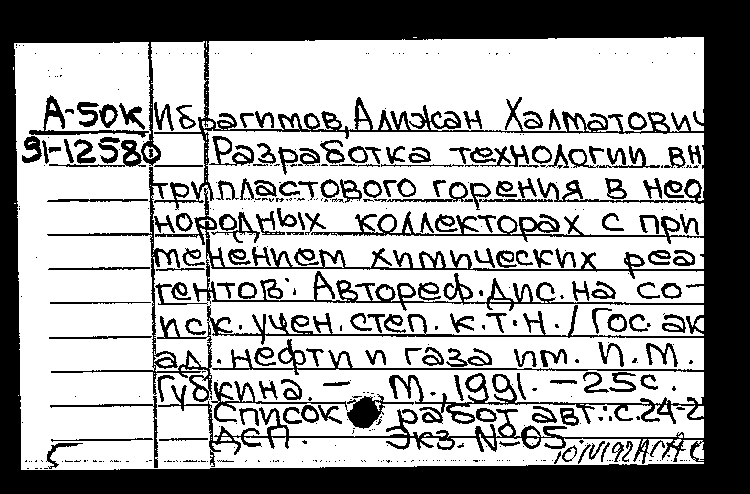 А-50к Ибрагимов, Алижан Халматович
91-12580 Разработка технологии вн
трипластового горения в нео
нородных коллекторах с при
менением химических реа-
гентов: Автореф. дис. на со-
иск. учен. степ. к.т.н. / Гос. ак
ад. нефти и газа им. И.М.
Губкина. — М., 1991. — 25с.
Список работ авт.: с.24-2
ДСП. Экз. №05